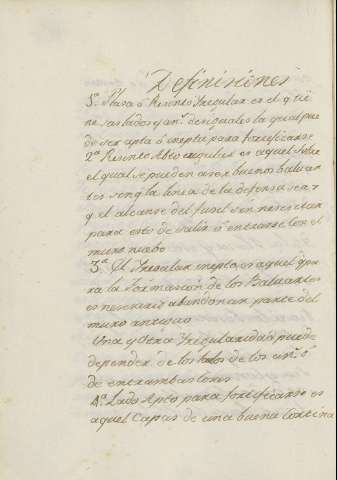 Definiciones
1ª Plasa ó Resinto Yregular es el q tie
ne sus lados y anˢ. desiguales la qual pue
de ser apta ó inepta para fortificarse
2ª Resinto Abto irregular es aquel sobre
el qual se pueden aser buenos baluar
tes senq la linea de la defensa sea r
y el alcanse del fusil sin nesesitar
para esto de salir ó entrarse con el
muro nuebo
3ª El Yrregular inepto es aquel q pa
ra la formasion de los Baluartes
es nesesario abandonar parte del
muro antiguo
Una y Otra Yregularidad puede
depender de los lados de los anˢ. ó
de entrambas cosas
4ª Lado Apto para fortificarse es
aquel capas de una buena Cortina